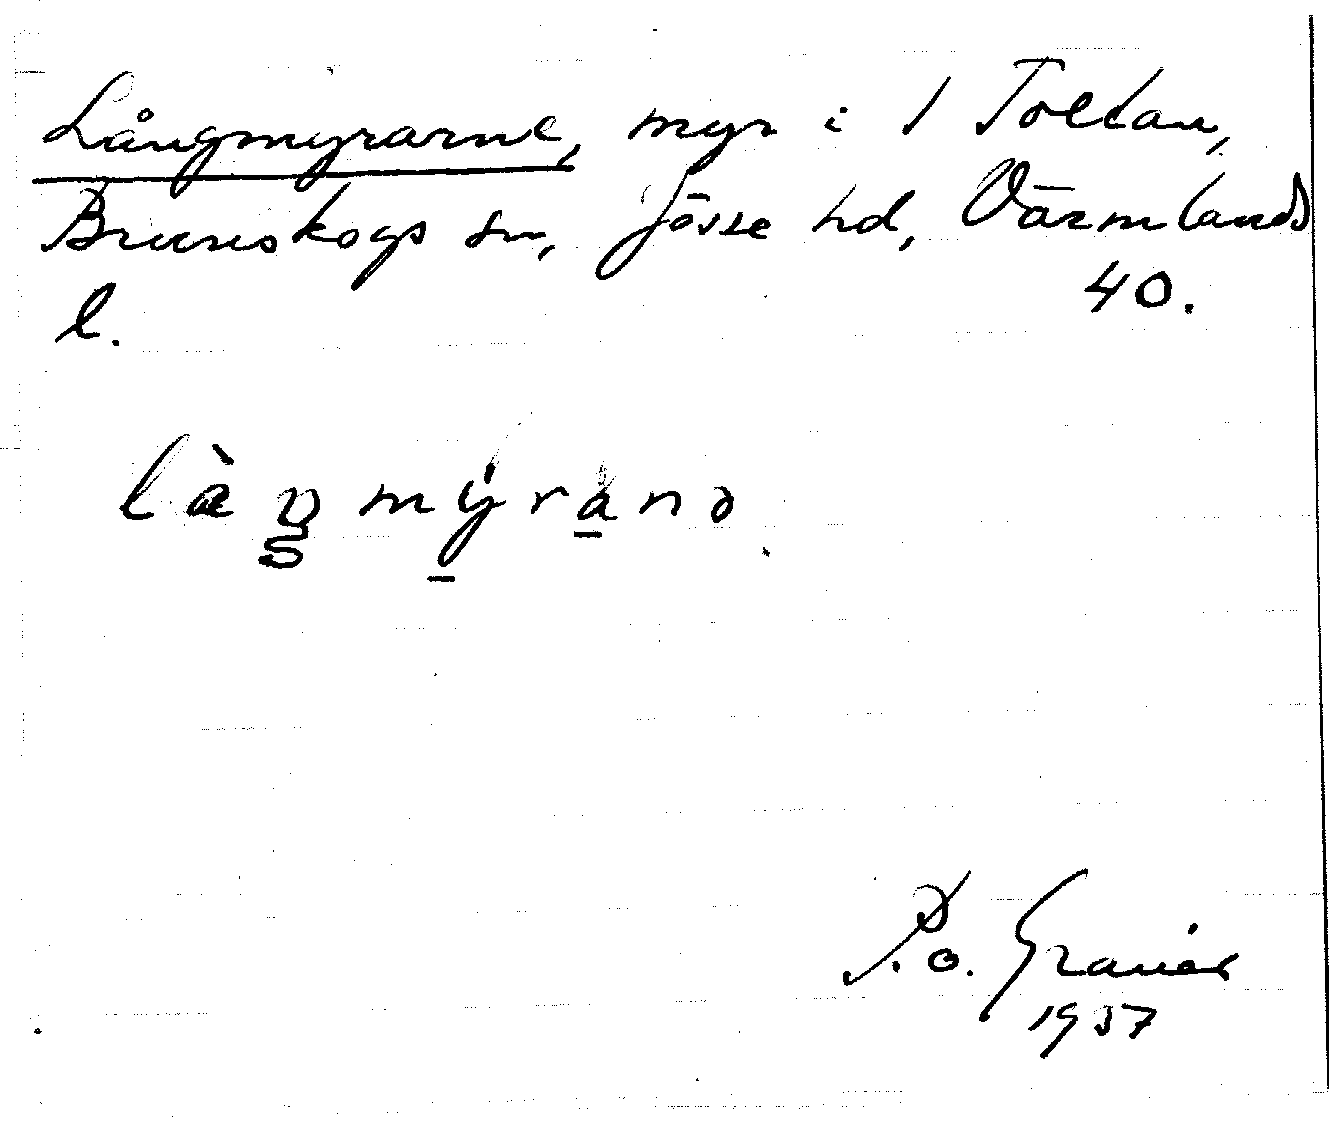 Långmyrarne, myr i 1 Toltan,
Brunskogs sn, Jösse hd, Värmlands
l. 40.
làŋmýranə
P. o. Granér
1937